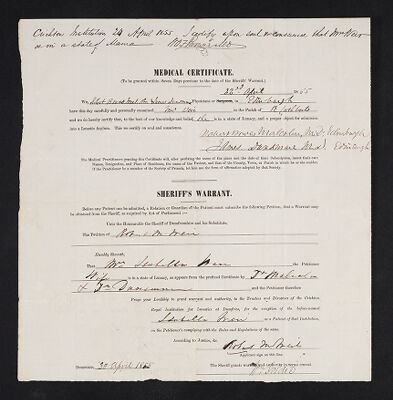 Crichton Institution 24 April 1855 I certify upon soul & conscience that Mrs Weir
is in a state of Mania
MEDICAL CERTIFICATE.
(To be granted within Seven Days previous to the date of the Sheriff's Warrant.)
22nd April 1855
We, and Physicians or Surgeons, in Edinburgh
have this day carefully and personally examined Mrs Weir in the Parish of St Cuthberts
and we do hereby certify, that to the best of our knowledge and belief, she is in a state of Lunacy, and a proper object for admission
into a Lunatic Asylum. This we certify on soul and conscience.
Malcolm, M.D., Edinburgh
James Dunsmure M.D. Edinburgh
The Medical Practitioners granting this Certificate will, after prefixing the name of the place and the date of their Subscription, insert their own
Names, Designation, and Place of Residence, the name of the Patient, and that of the County, Town, or Parish in which he or she resides
if the Practitioner be a member of the Society of Friends, let him use the form of affirmation adopted by that Society.
SHERIFF'S WARRANT.
Before any Patient can be admitted, a Relation or Guardian of the Patient must subscribe the following Petition, and a Warrant may
be obtained from the Sheriff, as required by Act of Parliament:—
Unto the Honourable the Sheriff of Dumfriesshire and his Substitutes,
The Petition of Robert M Weir
Humbly Sheweth,
That Mrs Isabella Weir the Petitioner's
Wife is in a state of Lunacy, as appears from the prefixed Certificate by Dr Malcolm
& Dr Dunsmure and the Petitioner therefore
Prays your Lordship to grant warrant and authority, to the Trustees and Directors of the Crichton
Royal Institution for Lunatics at Dumfries, for the reception of the before-named
Isabella Weir as a Patient of that Institution,
on the Petitioner's complying with the Rules and Regulations of the same.
According to Justice, &c.
Robert M Weir
Applicant sign on this line.
Dumfries, 30 April 1855
The Sheriff grants warrant and authority in terms craved.